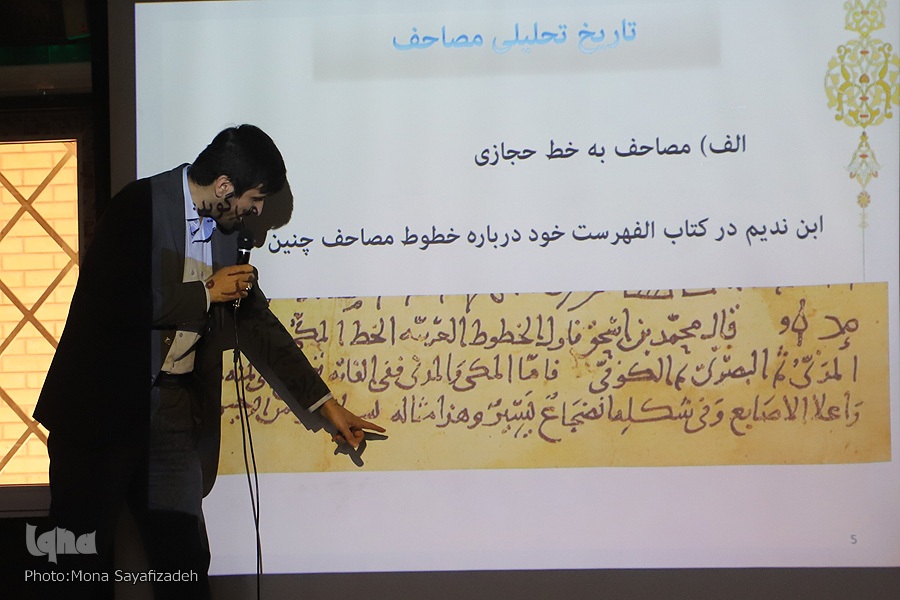 تاریخ تحلیلی مصاحف
الف) مصاحف به خط حجازی
ابن ندیم در کتاب الفهرست خود درباره خطوط مصاحف چنین
می‌گوید:
قال محمد بن اسحق فاول الخطوط العربيه الخط المكي
المدني ثم البصري ثم الكوفي فاما المكي والمدني ففي الفاته
واعلا الاصابع وفي شكله انضجاع يسير وهذا مثاله
5
Iqna
Photo:Mona Sayafizadeh